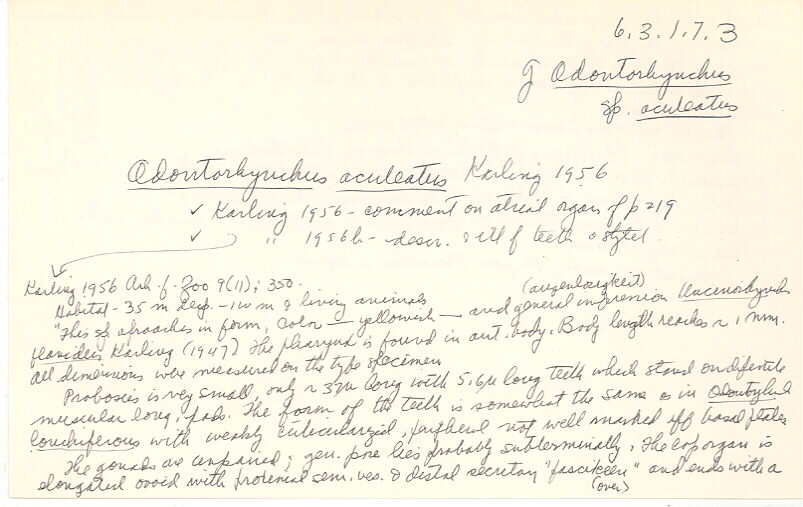 6.3.1.7.3
g Odontorhynchus
sp. aculeatus
Odontorhynchus aculeatus Karling 1956
✓ Karling 1956 - comment on atrial organ f p 219
✓ " 1956b - descr. & ill f teeth & stylet.
Karling 1956 Ark. f. Zoo 9(11): 350.
Habitat - 35 m deep. - 1 living animals
"This sp aproaches in form, Color — yellowish — and general impression Uncinorhynchus
flavidus Karling (1947) The pharynx is found in ant. body. Body length reaches ~ 1 mm.
All dimensions were measured on the type specimen
Proboscis is very small, only ~ 37µ long with 5.6µ long teeth which stand on
muscular long. pads. The form of the teeth is somewhat the same as in
with weakly cuticularized, not well marked off basal plates
The gonads are unpaired; gen. pore lies probably subterminally, The cop organ is
elongated ovoid with proximal sem. ves. & distal secretory "fascikeln" and ends with a
(over)